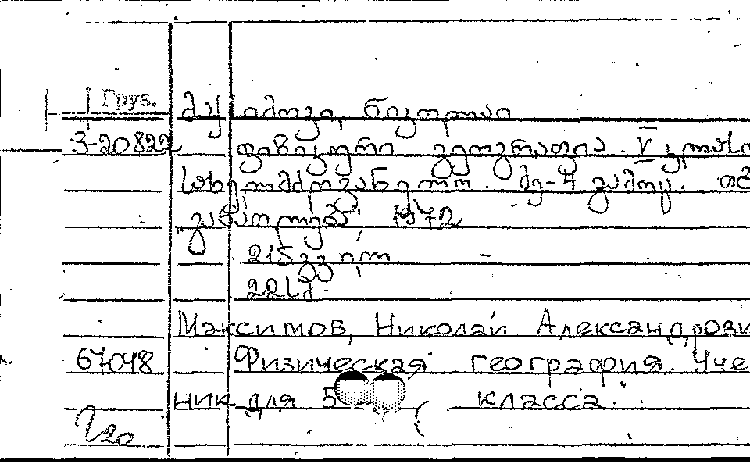 Груз.
ნიკოლაი
3-20822 ფიზიკური გეოგრაფია. V კლასი
სახელმძღვანელო. მე-4 გამოც. თბ
„განათლება", 1972
215 გვ
22სმ
Максимов, Николай Александрови
67048 Физическая география. Уче
ник для 5 класса.